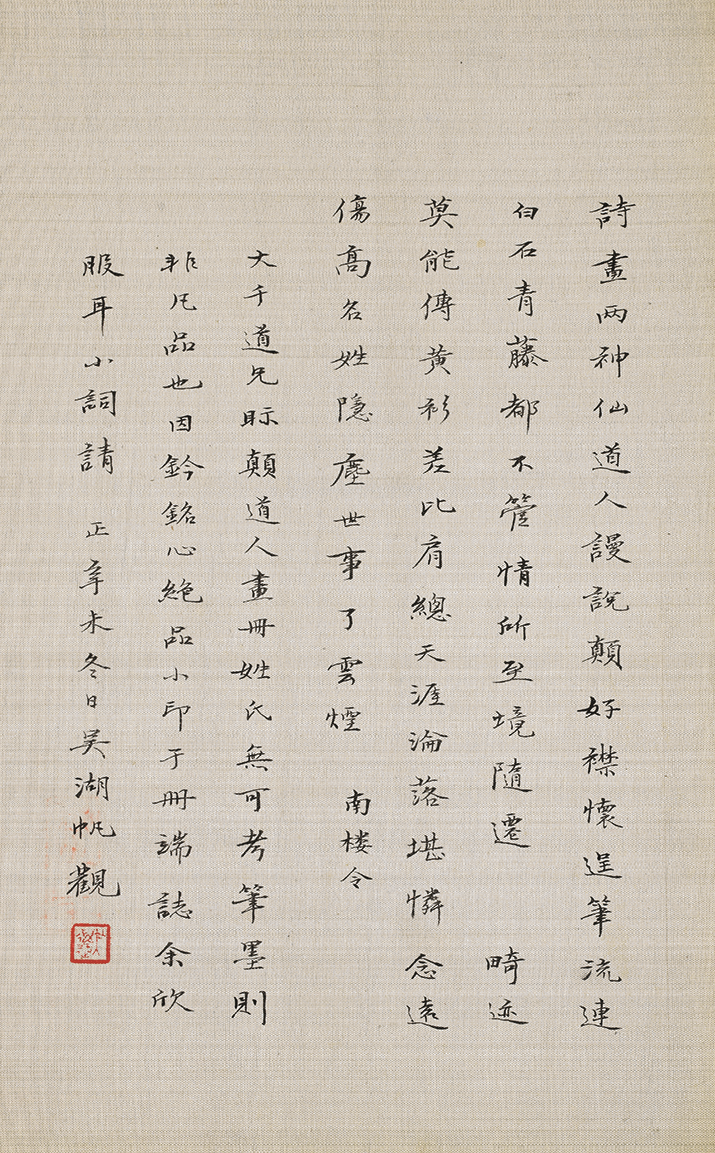 詩畫兩神仙道人謾說顛好襟懷逞筆流連
白石青藤都不管情所至境隨遷　畸迹
莫能傳黃衫差比肩總天涯淪落堪憐念遠
傷高名姓隱塵世事了雲煙　南楼令
大千道兄眎顛道人畫冊姓氏無可考筆墨則
非凡品也因鈐銘心絶品小印于冊端誌余欣
服耳小詞請　正辛未冬日吳湖帆觀